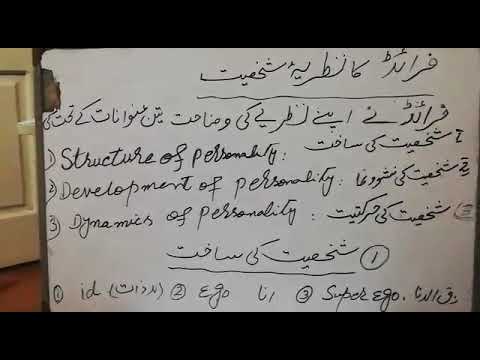 فرائڈ کا نظریۂ شخصیت
فرائڈ نے اپنے نظریے کی وضاحت تین عنوانات کے تحت کی
1) Structure of personality: شخصیت کی ساخت
2) Development of personality: شخصیت کی نشوونما
3) Dynamics of personality: شخصیت کی حرکیت
① شخصیت کی ساخت
① id (لاذات) ② Ego انا ③ Super Ego. فوق الانا